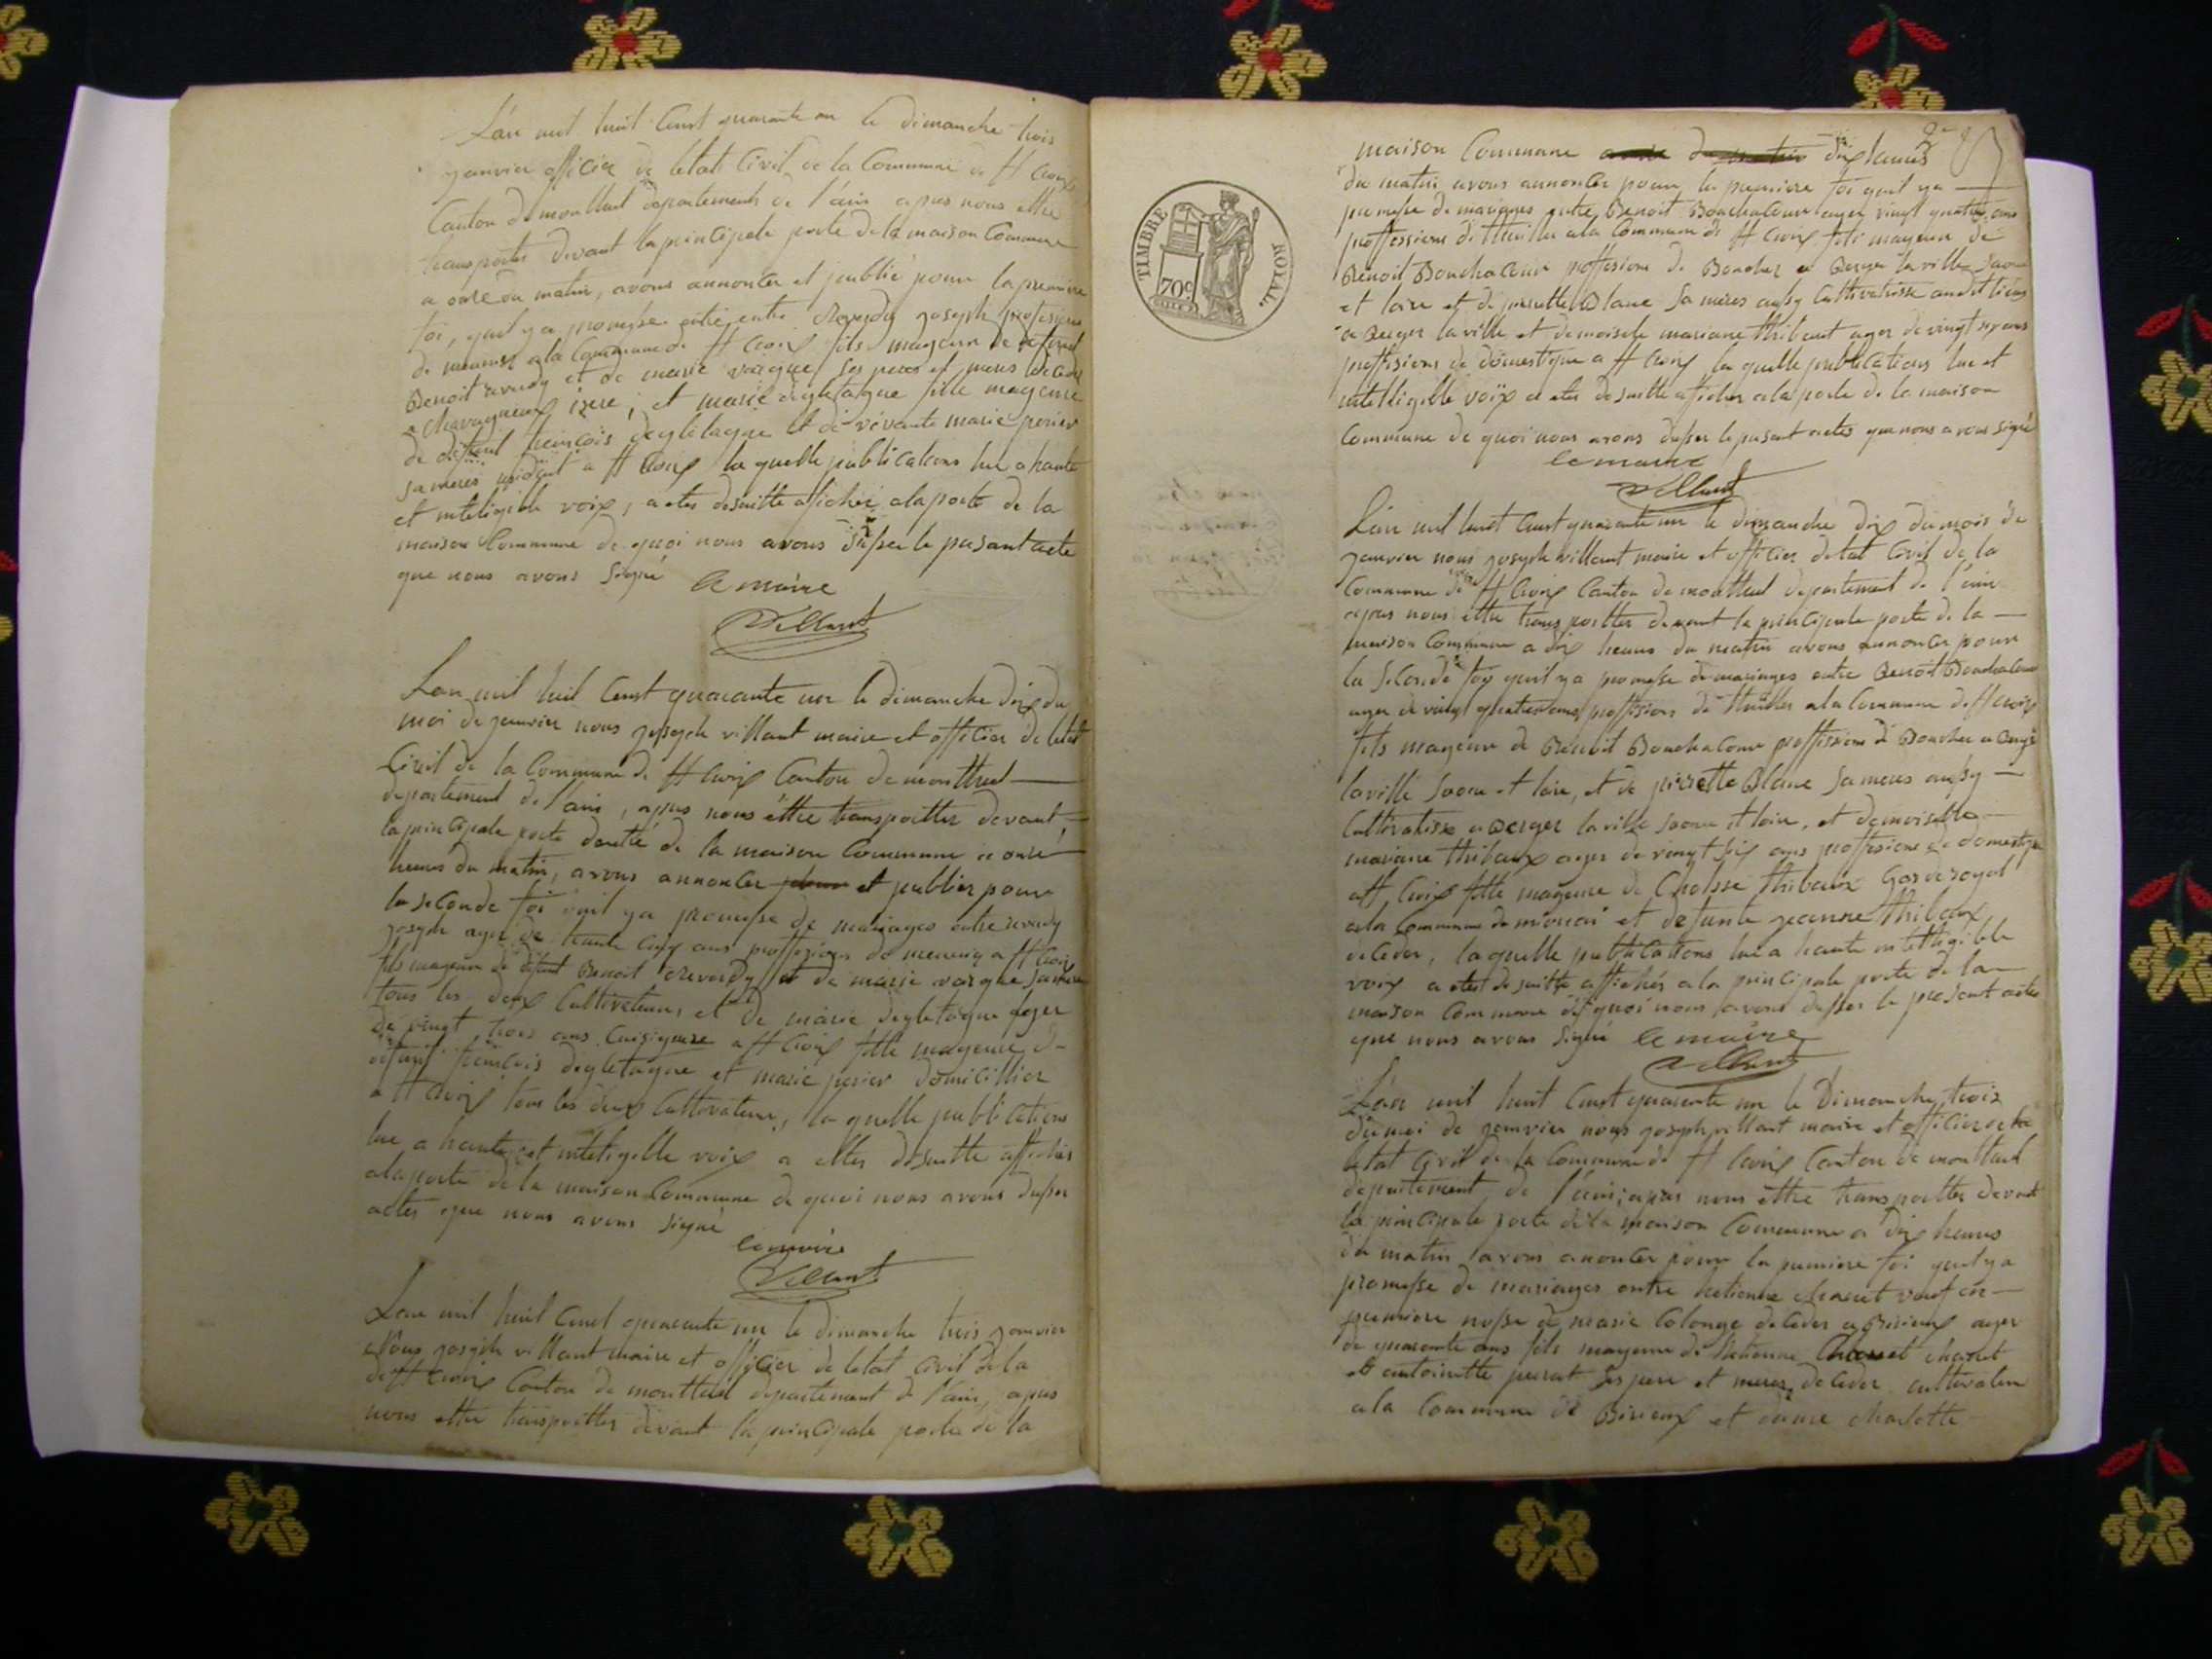 L'an mil huit Cent quarante un le dimanche trois
janvier officier de letat Civil de la Commune de St Croix
Canton de montluel departements de l'ain apres nous ettre
transportes devant la principale porte de la maison Commune
a onze du matin, avons annoncer et publié pour la premiere
foi, quil y a promesse entre Joseph proffession
de a la Commune de St Croix fils mageur de defunt
Benoit et de marie ses peres et meres
a Chavagneux isere, et marie degletagne fille mageure
de defunt francois degletagne et de vivante marie perier
sa meres a St Croix la quelle publications lue a haute
et inteligible voix, a etes desuitte afficher a la porte de la
maison Commune de quoi nous avons dresser le presant acte
que nous avons Signé le maire
Villant
Lan mil huit Cent quarante un le dimanche dix du
moi de janvier nous joseph villant maire et officier de letat
Civil de la Commune de St Croix Canton de montluel
departement de l'ain, apres nous êttre transportter devant
la principale porte de la maison Commune a onze
heures du matin, avons annoncer et publier pour
la seconde foi quil ya promesse de mariages entre
joseph ager de trente ans proffesion de a St Croix
fils mageur de defunt Benoit et de marie sa mere
tous les deux Cultivateurs, et de marie degletagne ager
de vingt trois ans Cuisiniere a St Croix fille mageure de
defunt francois degletagne et marie perier domicillier
a St Croix tous les deux Cultivateur, la quelle publications
lue a haute et inteligible voix a ettes desuitte affichés
a la porte de la maison Commune de quoi nous avons dresser
actes que nous avons signé
le maire
Villant
Lan mil huit Cent quarante un le dimanche trois janvier
Nous joseph villant maire et officier de letat Civil de la
de St Croix Canton de montluel departement de l'ain, apres
nous ettre transportter devant la principale porte de la
2
maison Commune dix heures
du matin avons annoncer pour la premiere foi quil ya
promesse de mariages entre Benoit Bouchacour ager vingt quatre ans
proffessions de a la Commune de St Croix fils mageur de
Benoit Bouchacour proffesions de Boucher a Berger la ville Saone
et loire et de pierrette Blanc Sa meres aussy Cultivatrisse audit lieux
a Berger la ville et demoiselle mariane thibaut ager de vingt six ans
proffesions de domestique a St Croix, la quelle publications lue et
intelligible voix a etes desuitte afficher a la porte de la maison
Commune de quoi nous avons dresser le presant actes que nous avons Signé
le maire
Villant
L'an mil huit Cent quarante un le dimanche dix du mois de
janvier nous joseph villant maire et officier de letat Civil de la
Commune de St Croix Canton de montluel departement de l'ain
apres nous ettre transportter devant la principale porte de la
maison Commune a dix heures du matin avons annoncer pour
la Seconde foy quil ya promesse de mariages entre Benoit Bouchacour
ager de vingt quatre ans proffesions de a la Commune de St Croix
fils mageur de Benoit Bouchacour proffesions de Boucher a Berger
la ville Saone et loire, et de pierrette Blanc Sa meres aussy
Cultivatrisse a Berger la ville Saone et loire, et demoiselle
mariane thibaux ager de vingt Six ans proffesions de domestique
a St Croix fille mageure de thibaux
a la Commune de et defunte jeanne thibaux
deceder, la quelle publications lue a haute intelligible
voix a etes de suitte affichés a la principale porte de la
maison Commune de quoi nous avons dresser le present actes
que nous avons Signé le maire
Villant
L'an mil huit Cent quarante un le Dimanche trois
du moi de janvier nous joseph villant maire et officier de
letat Civil de la Commune de St Croix Canton de montluel
departement de l'ain, apres nous ettre transportter devant
la principale porte de la maison Commune a dix heures
du matin avons anoncer pour la premiere foi quil ya
promesse de mariages entre hetienne Chanet veuf en
premiere nosse de marie Colonge deceder a Birieux ager
de quarante ans fils mageure de hetienne Chanet
et antoinette ses pere et meres deceder cultivateur
a la Commune de Birieux et dame charlotte
TIMBRE ROYAL.
70c